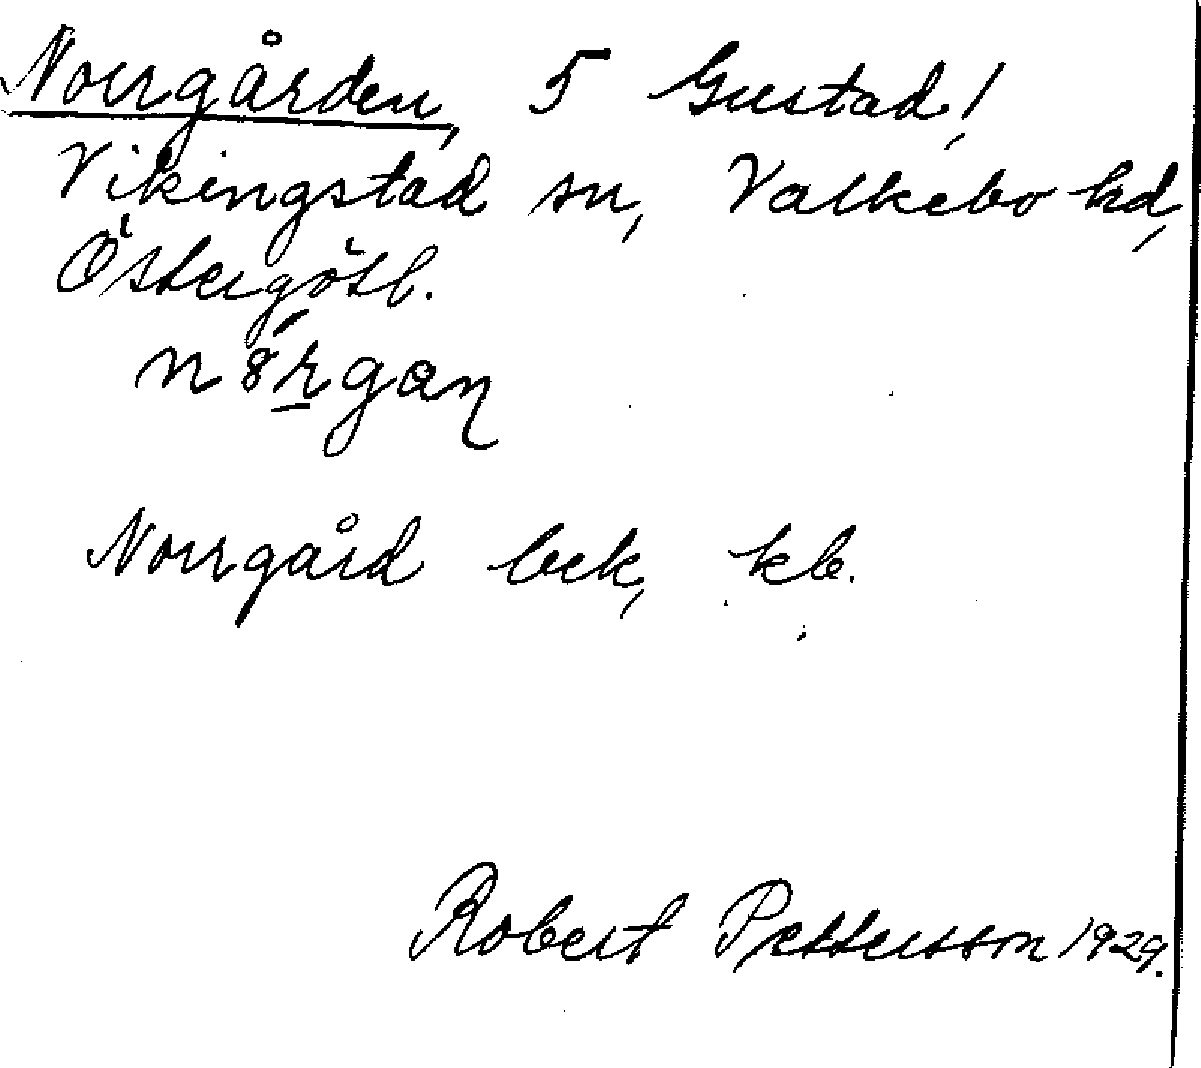 Norrgården, 5 Gustad,!
Vikingstad sn, Valkebo hd,
Östergötl.
Norrgård bek, kb.
Robert Pettersson 1929.